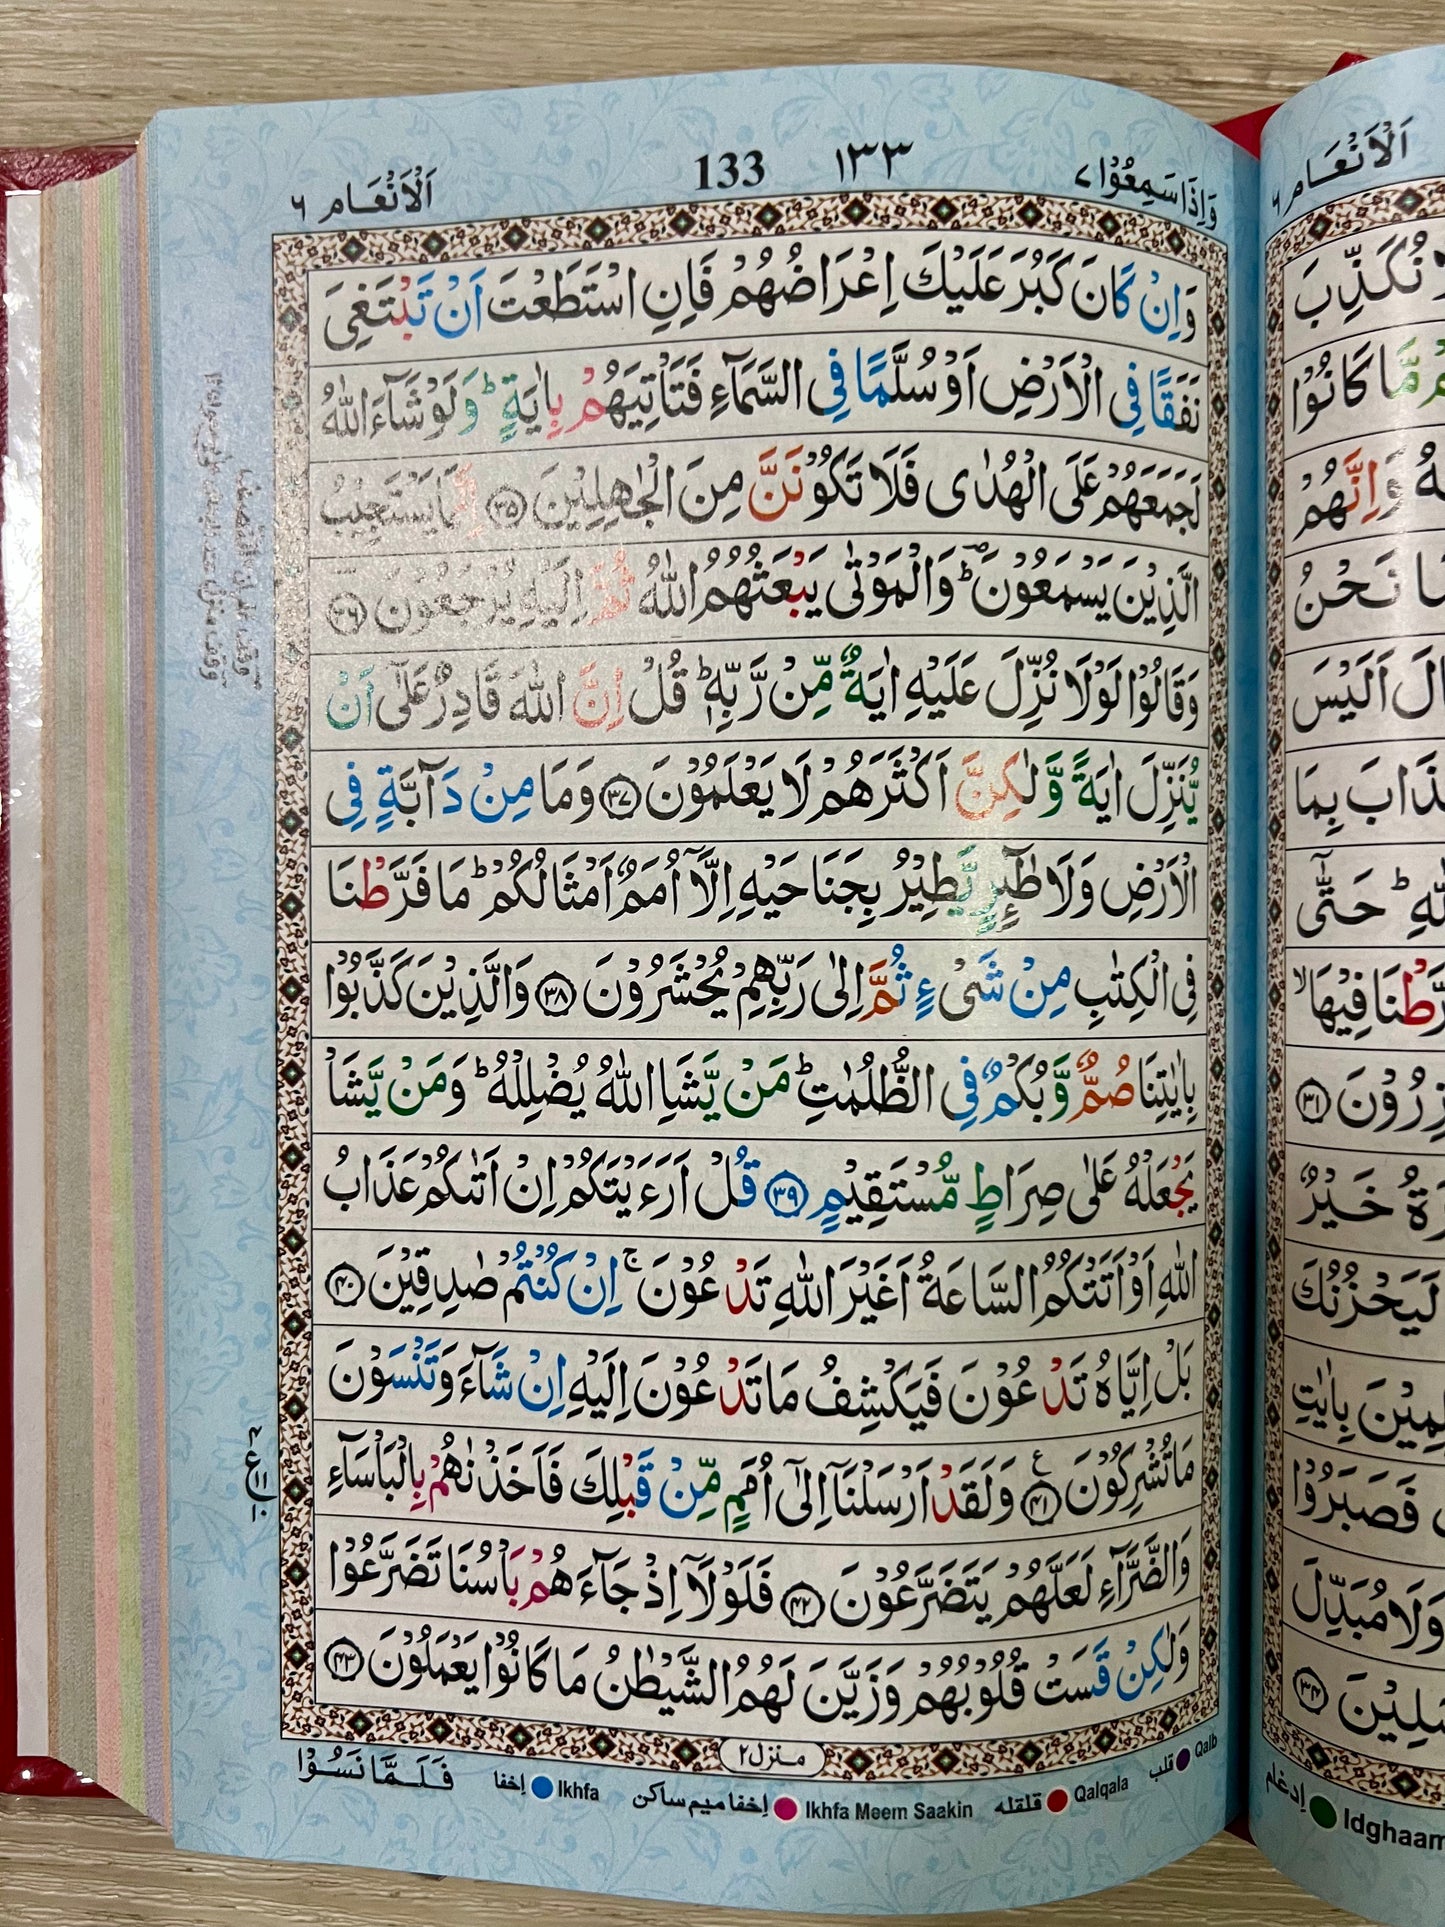 وَاِذَا سَمِعُوْا ٧
١٣٣
133
اَلْاَنْعَام ٦
وَاِنْ كَانَ كَبُرَ عَلَيْكَ اِعْرَاضُهُمْ فَاِنِ اسْتَطَعْتَ اَنْ تَبْتَغِىَ
نَفَقًا فِى الْاَرْضِ اَوْ سُلَّمًا فِى السَّمَآءِ فَتَاْتِيَهُمْ بِاٰيَةٍ ؕ وَلَوْ شَآءَ اللّٰهُ
لَجَمَعَهُمْ عَلَى الْهُدٰى فَلَا تَكُوْنَنَّ مِنَ الْجٰهِلِيْنَ ٣٥ اِنَّمَا يَسْتَجِيْبُ
الَّذِيْنَ يَسْمَعُوْنَ ؕ وَالْمَوْتٰى يَبْعَثُهُمُ اللّٰهُ ثُمَّ اِلَيْهِ يُرْجَعُوْنَ ٣٦
وَقَالُوْا لَوْلَا نُزِّلَ عَلَيْهِ اٰيَةٌ مِّنْ رَّبِّهٖ ؕ قُلْ اِنَّ اللّٰهَ قَادِرٌ عَلٰٓى اَنْ
يُّنَزِّلَ اٰيَةً وَّلٰكِنَّ اَكْثَرَهُمْ لَا يَعْلَمُوْنَ ٣٧ وَمَا مِنْ دَآبَّةٍ فِى
الْاَرْضِ وَلَا طٰٓئِرٍ يَّطِيْرُ بِجَنَاحَيْهِ اِلَّاۤ اُمَمٌ اَمْثَالُكُمْ ؕ مَا فَرَّطْنَا
فِى الْكِتٰبِ مِنْ شَىْءٍ ثُمَّ اِلٰى رَبِّهِمْ يُحْشَرُوْنَ ٣٨ وَالَّذِيْنَ كَذَّبُوْا
بِاٰيٰتِنَا صُمٌّ وَّبُكْمٌ فِى الظُّلُمٰتِ ؕ مَنْ يَّشَاِ اللّٰهُ يُضْلِلْهُ ؕ وَمَنْ يَّشَاْ
يَجْعَلْهُ عَلٰى صِرَاطٍ مُّسْتَقِيْمٍ ٣٩ قُلْ اَرَءَيْتَكُمْ اِنْ اَتٰىكُمْ عَذَابُ
اللّٰهِ اَوْ اَتَتْكُمُ السَّاعَةُ اَغَيْرَ اللّٰهِ تَدْعُوْنَ ۚ اِنْ كُنْتُمْ صٰدِقِيْنَ ٤٠
بَلْ اِيَّاهُ تَدْعُوْنَ فَيَكْشِفُ مَا تَدْعُوْنَ اِلَيْهِ اِنْ شَآءَ وَتَنْسَوْنَ
مَا تُشْرِكُوْنَ ٤١ ع وَلَقَدْ اَرْسَلْنَاۤ اِلٰٓى اُمَمٍ مِّنْ قَبْلِكَ فَاَخَذْنٰهُمْ بِالْبَاْسَآءِ
وَالضَّرَّآءِ لَعَلَّهُمْ يَتَضَرَّعُوْنَ ٤٢ فَلَوْلَاۤ اِذْ جَآءَهُمْ بَاْسُنَا تَضَرَّعُوْا
وَلٰكِنْ قَسَتْ قُلُوْبُهُمْ وَزَيَّنَ لَهُمُ الشَّيْطٰنُ مَا كَانُوْا يَعْمَلُوْنَ ٤٣
منزل ٢
فَلَمَّا نَسُوْا
Qalb قلب
Qalqala قلقله
Ikhfa Meem Saakin اِخفا میم ساکن
Ikhfa اِخفا
اَلْاَنْعَام ٦
نُكَذِّبَ
مَّا كَانُوْا
وَاِنَّهُمْ
نَحْنُ
اَلَيْسَ
بِمَا
حَتّٰٓى
فِيْهَا ۙ
٣١
خَيْرٌ
لَيَحْزُنُكَ
بِاٰيٰتِ
فَصَبَرُوْا
وَلَا مُبَدِّلَ
٣٤
Idghaam اِدغام